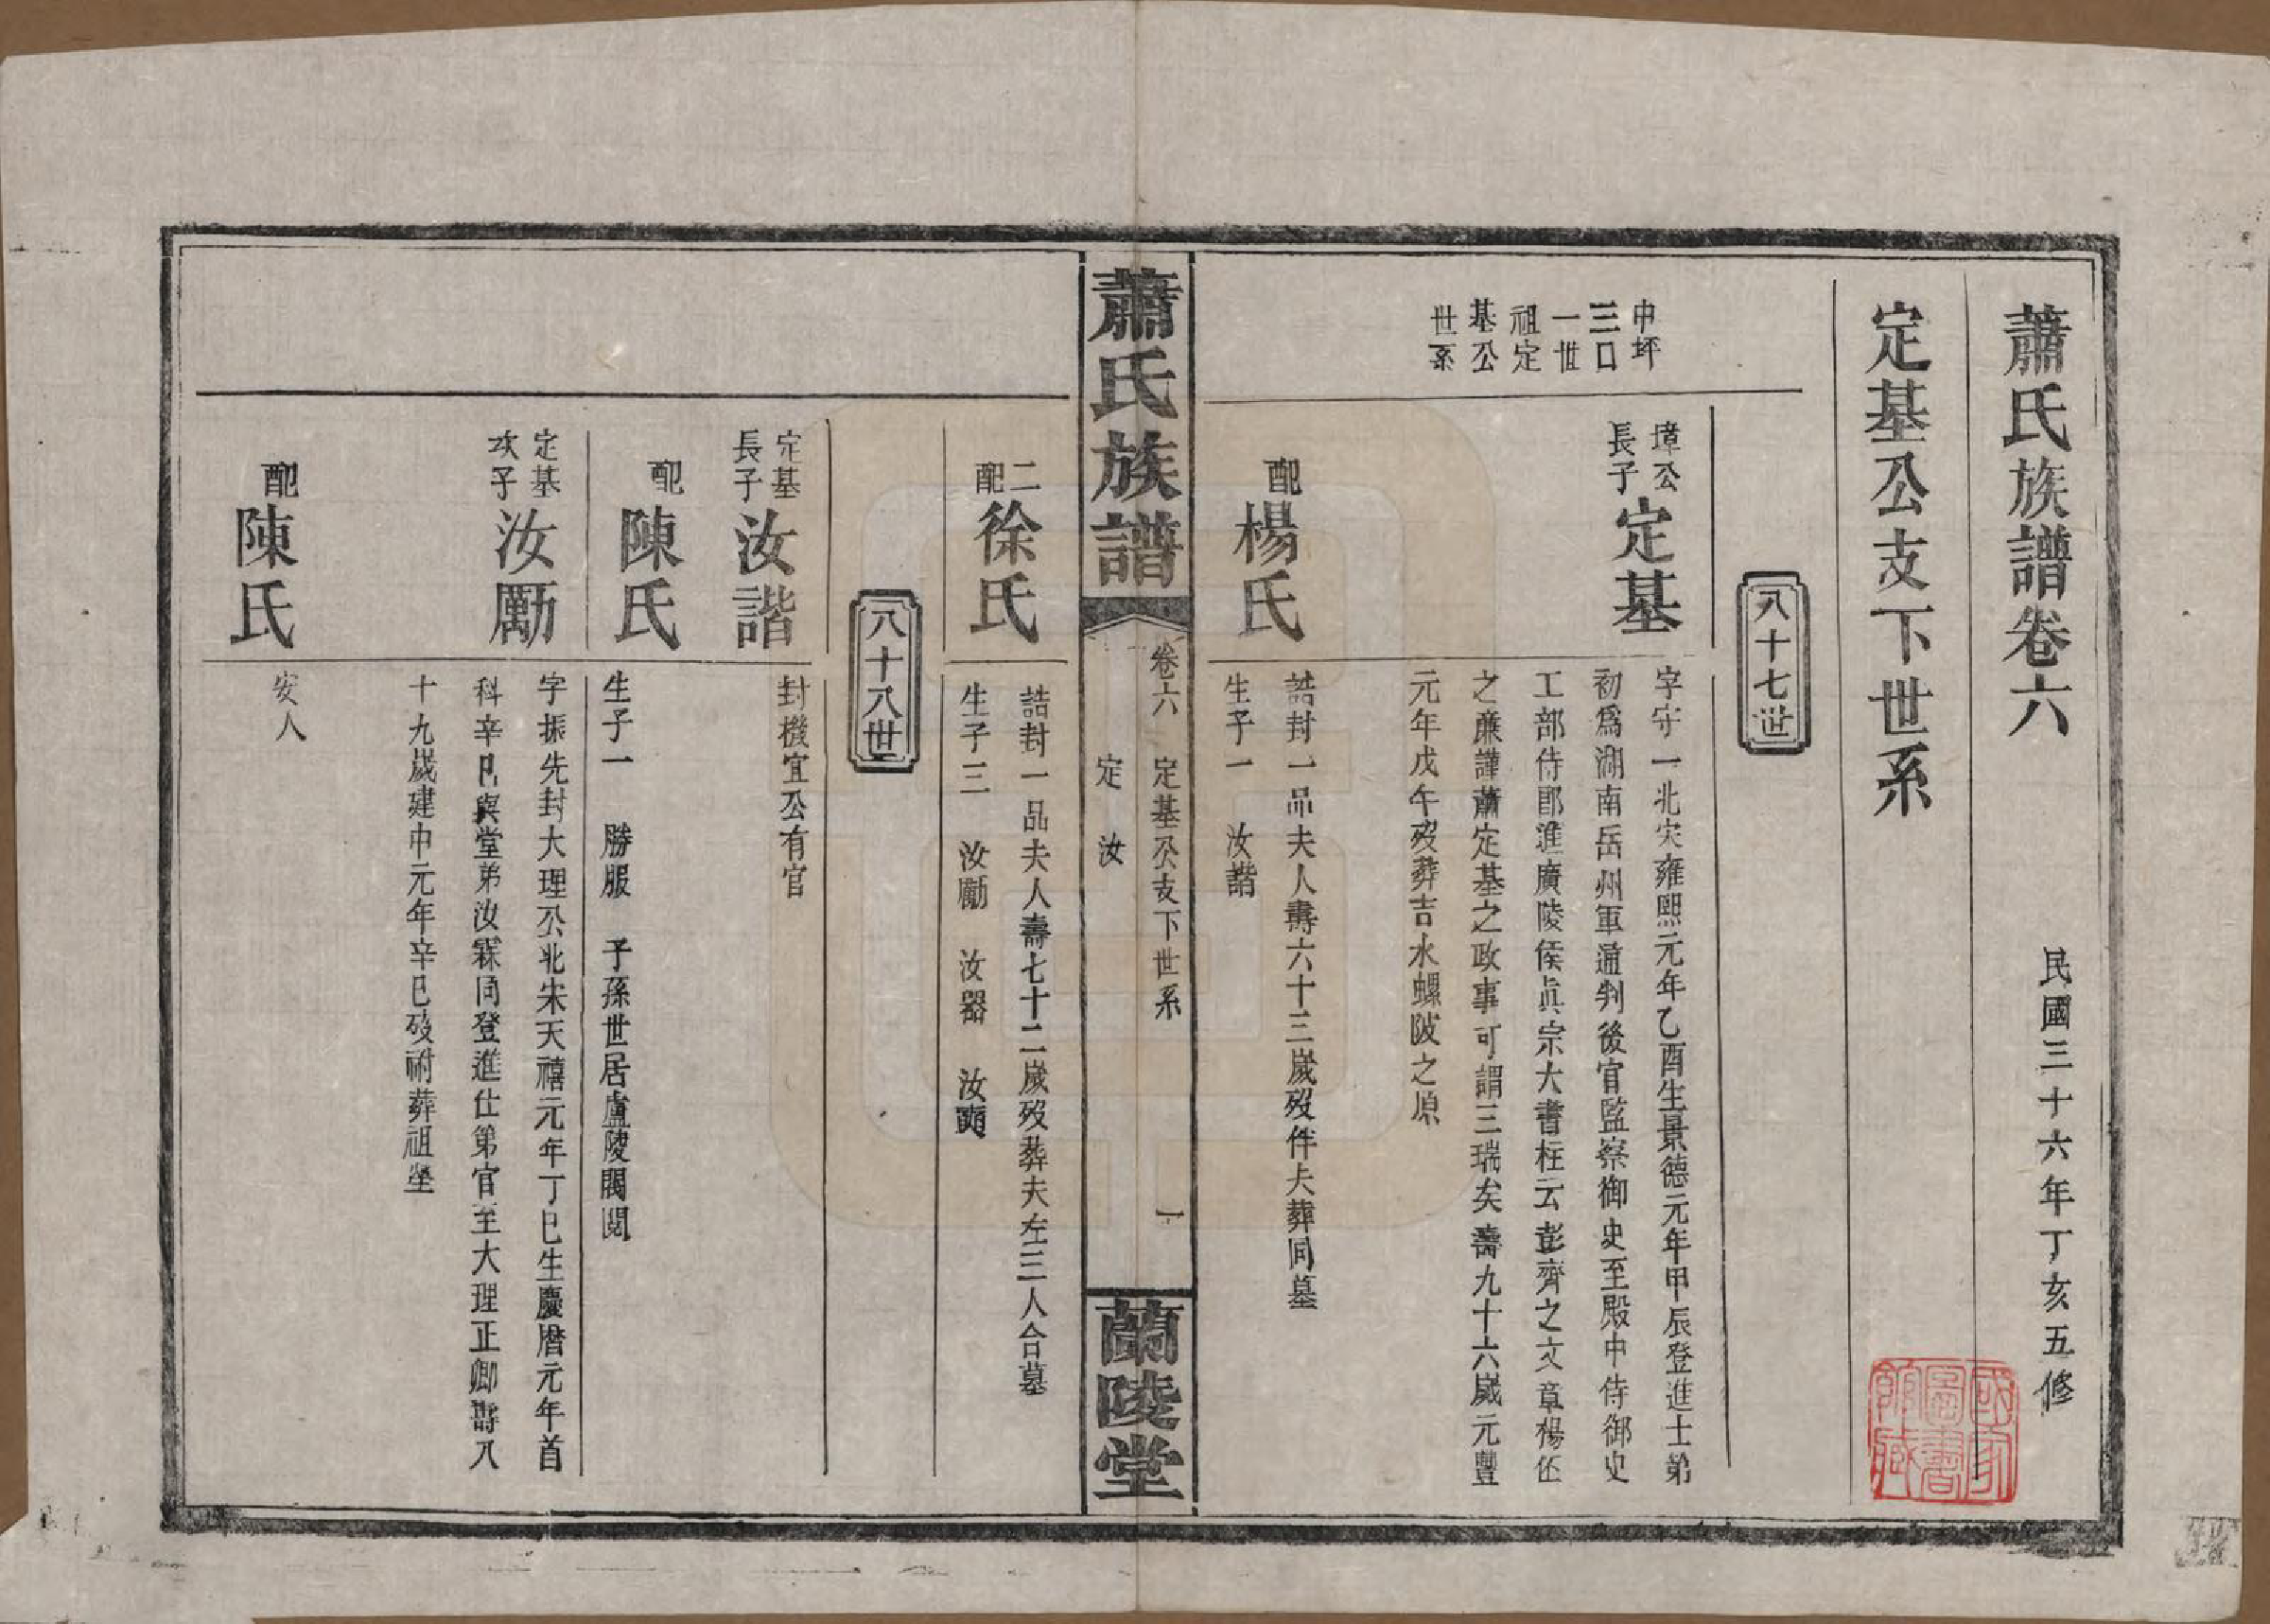 蕭氏族譜卷六
民國三十六年丁亥五修
定基公支下世系
八十七世
中坪
三口
一世
祖定
基公
世系
璋公
長子
定基
字守一北宋雍熙元年乙酉生景德元年甲辰登進士第
初為湖南岳州軍通判後官監察御史至殿中侍御史
工部侍郎進廣陵侯真宗大書柱云彭齊之文章楊伾
之廉謹蕭定基之政事可謂三瑞矣壽九十六歲元豐
元年戊午歿葬吉水螺陂之原
配
楊氏
誥封一品夫人壽六十三歲歿伴夫葬同墓
生子一 汝諧
蕭氏族譜
卷六 定基公支下世系 一
定 汝
蘭陵堂
二
配
徐氏
誥封一品夫人壽七十二歲歿葬夫左三人合墓
生子三 汝勵 汝器 汝
八十八世
定基
長子
汝諧
封機宜公有官
配
陳氏
生子一 勝服 子孫世居盧陵
定基
次子
汝勵
字振先封大理公北宋天禧元年丁巳生慶曆元年首
科辛巳與堂弟汝霖同登進仕第官至大理正卿壽八
十九歲建中元年辛巳歿祔葬祖塋
配
陳氏
安人
國家
圖書
館藏